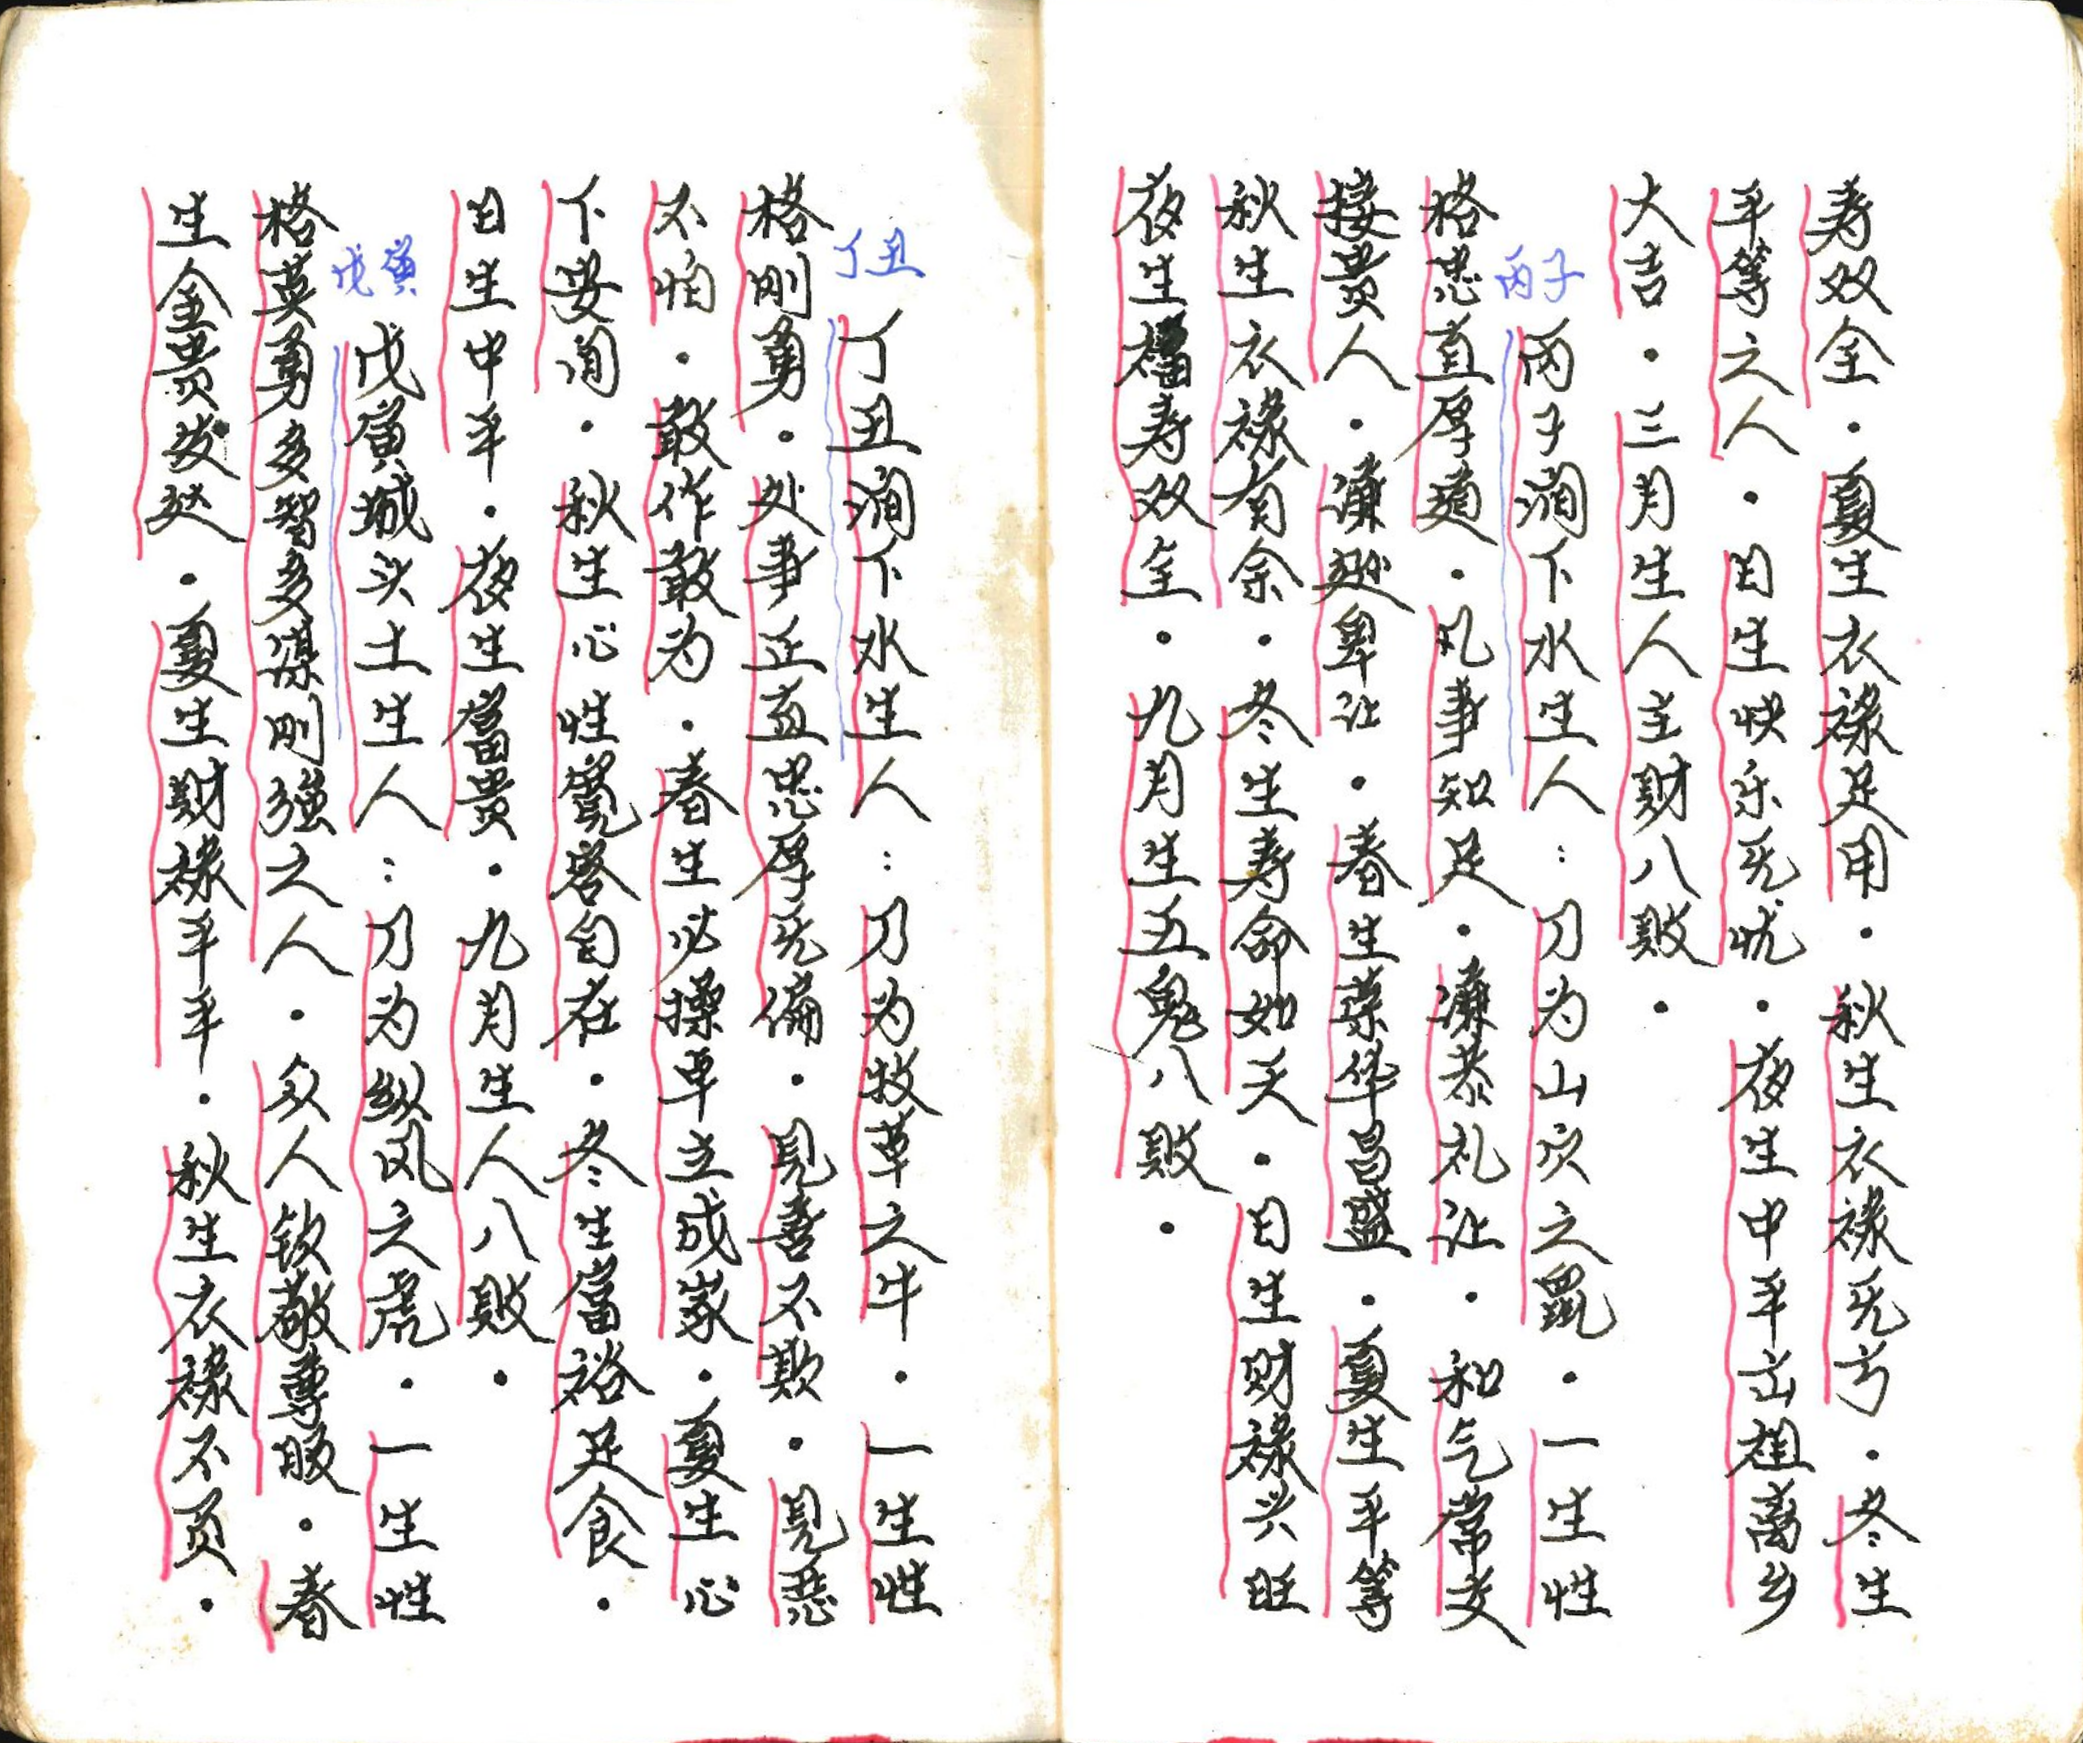 寿双全．夏生衣禄足用．秋生衣禄无亏．冬生
平等之人．日生快乐无忧．夜生中平立祖离乡
大吉．三月生人主财八败．
丙子
丙子涧下水生人：乃为山穴之鼠．一生性
格忠直厚道．凡事知足．谦恭礼让．和气常交
接贵人．谦逊卑让．春生荣华昌盛．夏生平等
秋生衣禄有余．冬生寿命如天．日生财禄兴旺
夜生福寿双全．九月生五鬼八败．
丁丑
丁丑涧下水生人：乃为牧草之牛．一生性
格刚勇．处事正直忠厚无偏．見善不欺．見恶
不怕．敢作敢为．春生必操卓立成家．夏生心
下安闲．秋生心性宽容自在．冬生富裕足食．
日生中平．夜生富贵．九月生人八败．
戊寅
戊寅城头土生人：乃为纵风之虎．一生性
格英勇多智多谋刚強之人．众人钦敬尊服．春
生金贵发达．夏生财禄平平．秋生衣禄不贡．